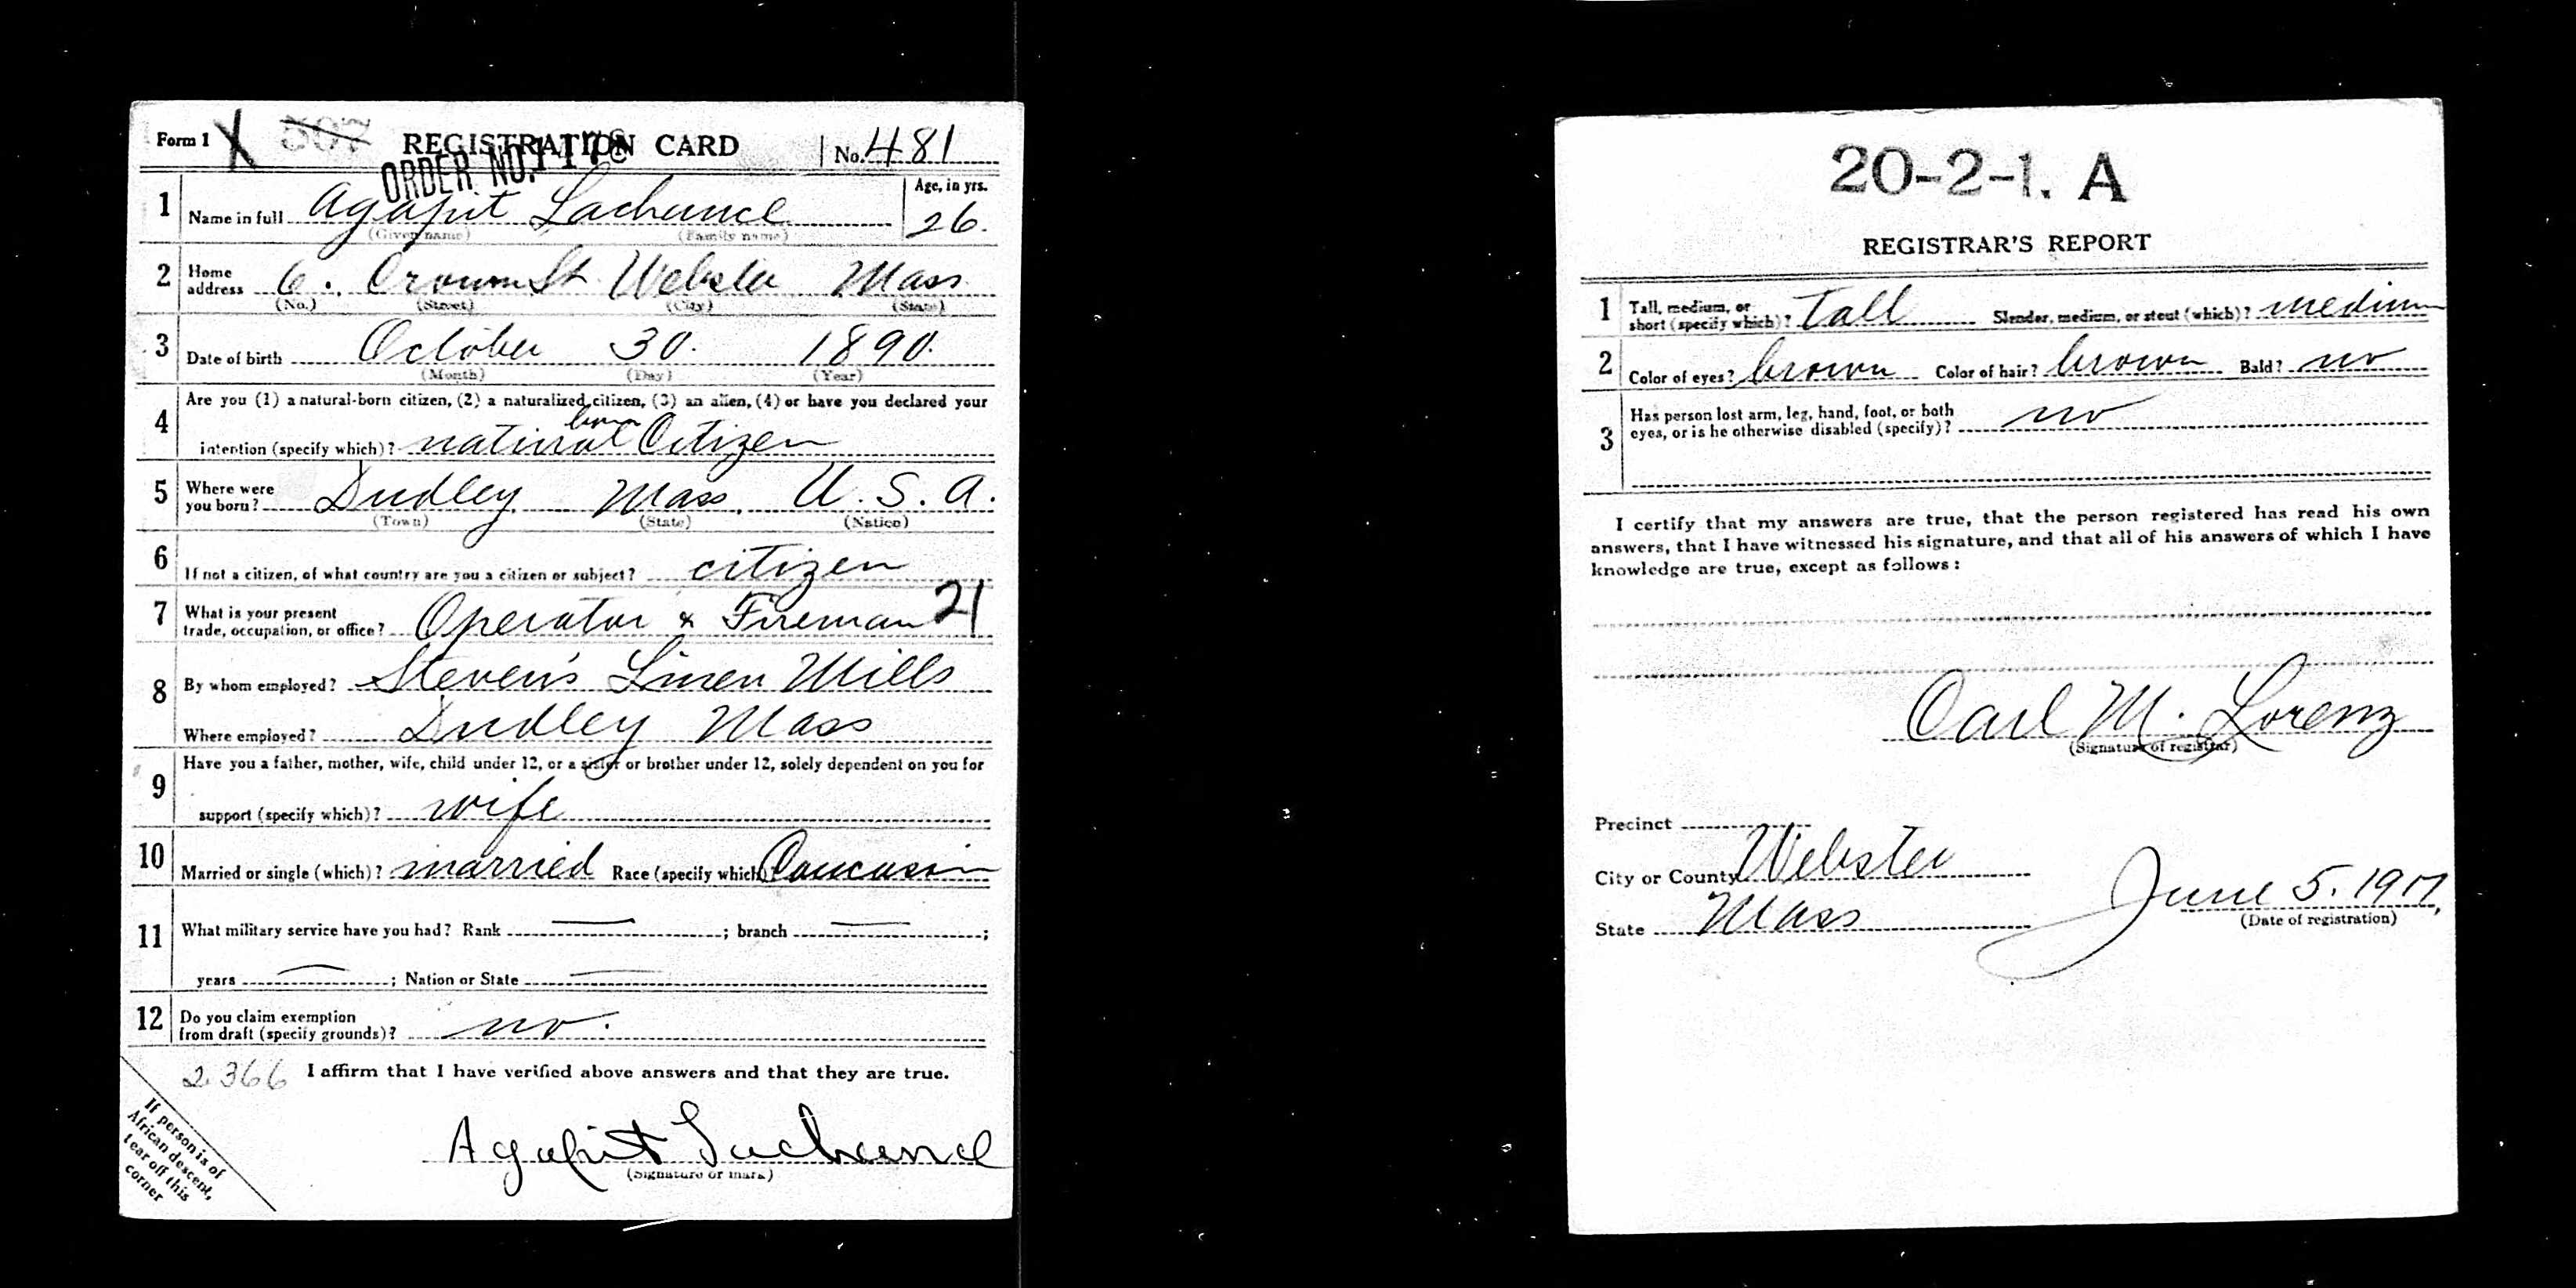 Form 1 X 507 REGISTRATION CARD No. 481
ORDER NO. 1178
1 Name in full Agapit Lachance Age, in yrs. 26.
(Given name) (Family name)
2 Home address 6. Crown St Webster Mass.
(No.) (Street) (City) (State)
3 Date of birth October 30. 1890.
(Month) (Day) (Year)
4 Are you (1) a natural-born citizen, (2) a naturalized citizen, (3) an alien, (4) or have you declared your
born
intention (specify which)? natural Citizen
5 Where were you born? Dudley Mass. U. S. A.
(Town) (State) (Nation)
6 If not a citizen, of what country are you a citizen or subject? citizen
7 What is your present
trade, occupation, or office? Operator & Fireman 21
8 By whom employed? Steven's Linen Mills
Where employed? Dudley Mass
9 Have you a father, mother, wife, child under 12, or a sister or brother under 12, solely dependent on you for
support (specify which)? wife
10 Married or single (which)? married Race (specify which) Caucasin
11 What military service have you had? Rank — ; branch — ;
years — ; Nation or State —
12 Do you claim exemption
from draft (specify grounds)? no.
2366 I affirm that I have verified above answers and that they are true.
Agapit Lachance
(Signature or mark)
If person is of
African descent,
tear off this
corner
20-2-1. A
REGISTRAR'S REPORT
1 Tall, medium, or
short (specify which)? Tall Slender, medium, or stout (which)? medium
2 Color of eyes? brown Color of hair? brown Bald? no
3 Has person lost arm, leg, hand, foot, or both
eyes, or is he otherwise disabled (specify)? no
I certify that my answers are true, that the person registered has read his own
answers, that I have witnessed his signature, and that all of his answers of which I have
knowledge are true, except as follows:
Carl M. Lorenz
(Signature of registrar)
Precinct
City or County Webster
State Mass
June 5. 1917.
(Date of registration)